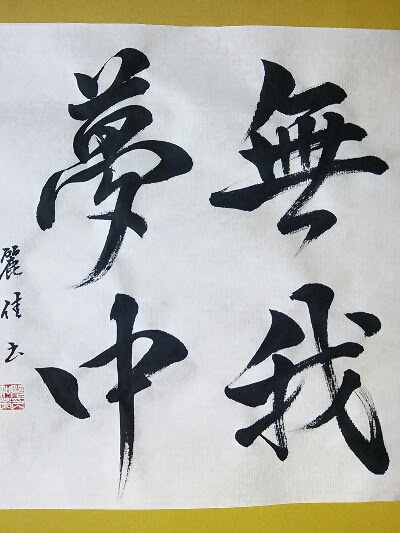 無我
夢中
麗佳书